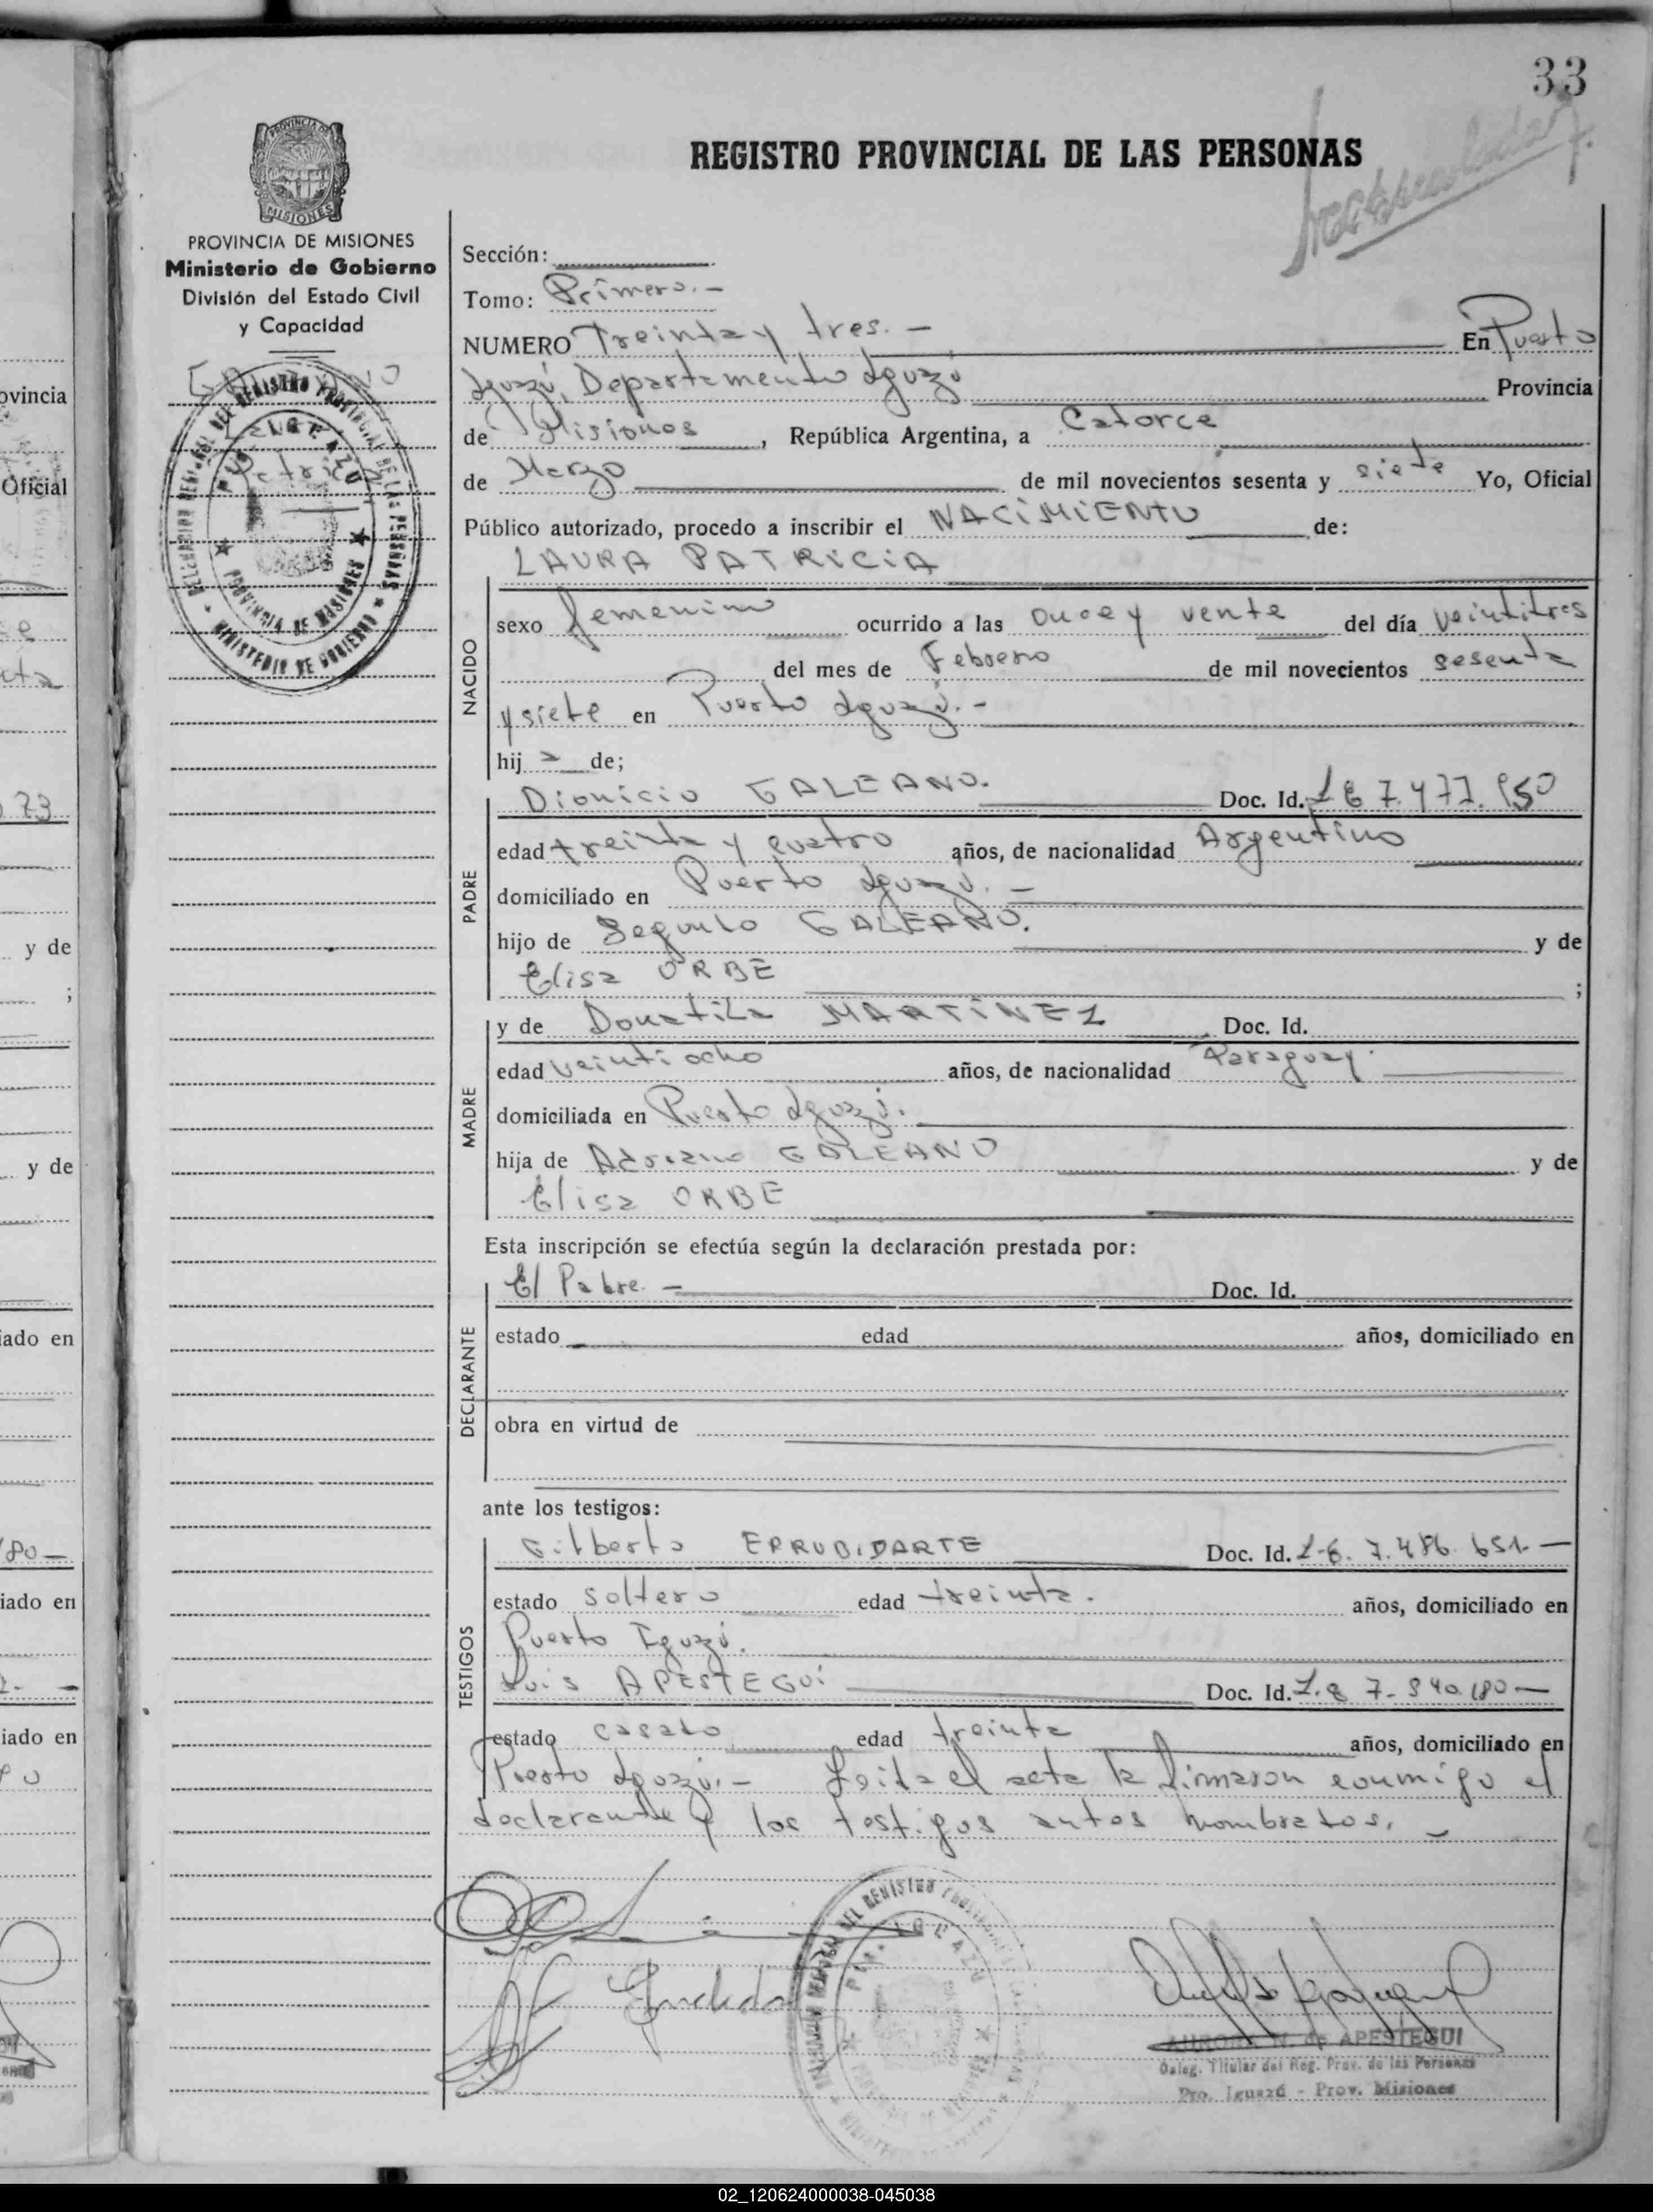 33
REGISTRO PROVINCIAL DE LAS PERSONAS
PROVINCIA DE
MISIONES
PROVINCIA DE MISIONES
Ministerio de Gobierno
División del Estado Civil
y Capacidad
GALEANO
Laura
Patricia
Sección:
Tomo: Primero.-
NUMERO Treinta y tres.- En Puerto
Iguazú, Departamento Iguazú Provincia
de Misiones, República Argentina, a Catorce
de Marzo de mil novecientos sesenta y siete Yo, Oficial
Público autorizado, procedo a inscribir el NACIMIENTO de:
LAURA PATRICIA
NACIDO
sexo femenino ocurrido a las once y vente del día veintitres
del mes de Febrero de mil novecientos sesenta
y siete en Puerto Iguazú.-
hij a de;
PADRE
Dionicio GALEANO. Doc. Id.
edad treinta y cuatro años, de nacionalidad Argentino
domiciliado en Puerto Iguazú.-
hijo de Segundo GALEANO. y de
Elisa ORBE ;
MADRE
y de Donatila MARTINEZ Doc. Id.
edad veinti ocho años, de nacionalidad Paraguay.
domiciliada en Puerto Iguazú.
hija de Adriano GALEANO y de
Elisa ORBE
Esta inscripción se efectúa según la declaración prestada por:
DECLARANTE
El Padre.- Doc. Id.
estado edad años, domiciliado en
obra en virtud de
ante los testigos:
TESTIGOS
Gilberto ERRUBIDARTE Doc. Id. 7.486.651.-
estado soltero edad treinta. años, domiciliado en
Puerto Iguazú.
Luis APESTEGUI Doc. Id. 7.540.180-
estado casado edad treinta años, domiciliado en
Puerto Iguazú.- Leida el acta la firmaron conmigo el
declarante y los testigos antes nombrados.-
AURORA N. de APESTEGUI
Deleg. Titular del Reg. Prov. de las Personas
Pto. Iguazú - Prov. Misiones
02_120624000038-045038